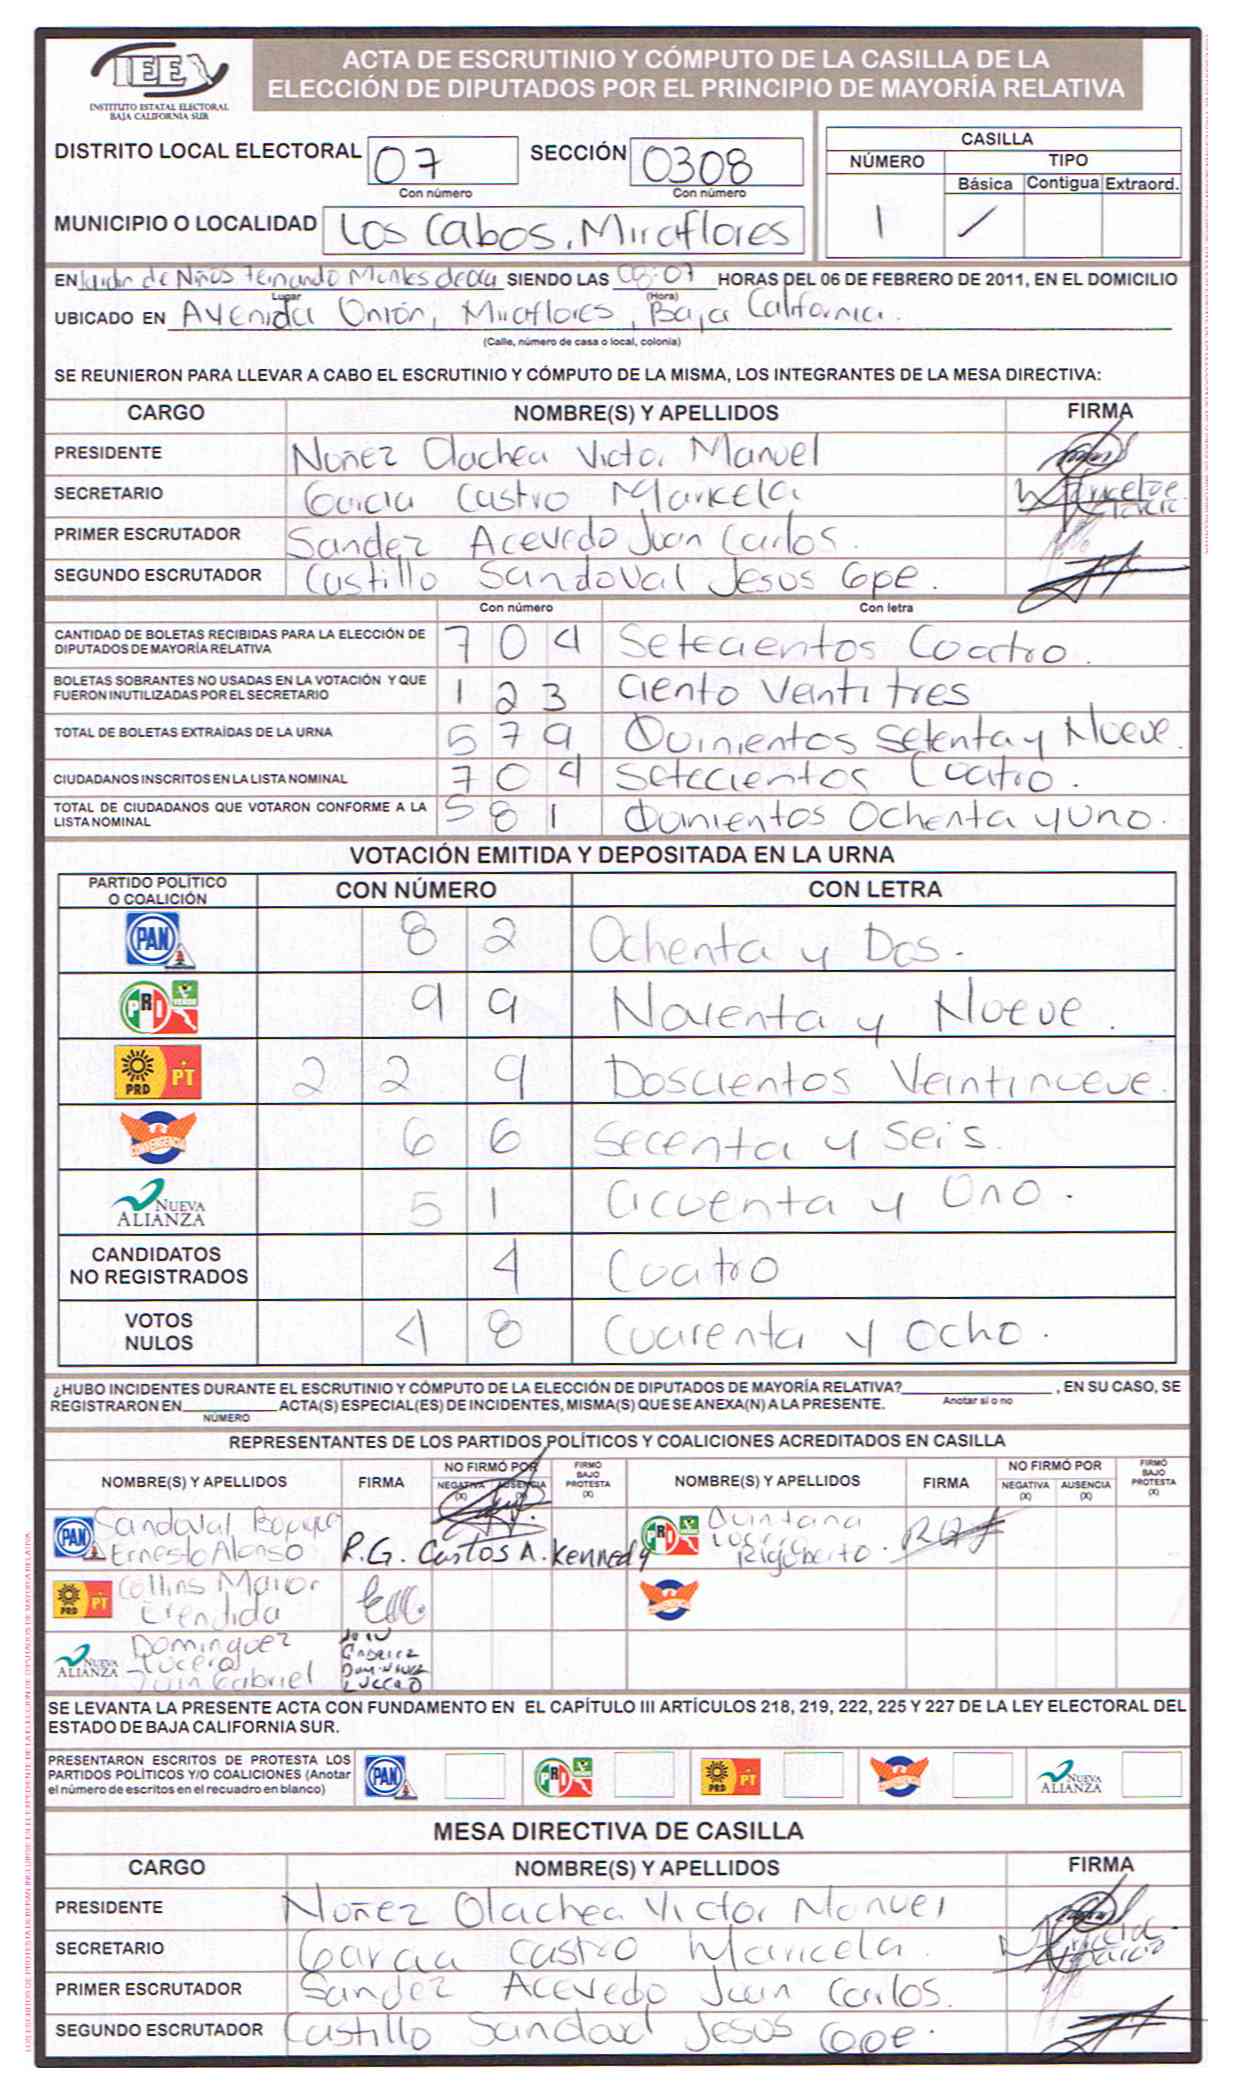 IEE
INSTITUTO ESTATAL ELECTORAL
BAJA CALIFORNIA SUR
ACTA DE ESCRUTINIO Y CÓMPUTO DE LA CASILLA DE LA
ELECCIÓN DE DIPUTADOS POR EL PRINCIPIO DE MAYORÍA RELATIVA
DISTRITO LOCAL ELECTORAL 07 SECCIÓN 0308
Con número Con número
MUNICIPIO O LOCALIDAD Los Cabos, Miraflores
CASILLA
NÚMERO TIPO
Básica Contigua Extraord.
1 /
EN Jardin de Niños Fernando Montes de Oca SIENDO LAS 08:07 HORAS DEL 06 DE FEBRERO DE 2011, EN EL DOMICILIO
Lugar (Hora)
UBICADO EN Avenida Unión, Miraflores, Baja California.
(Calle, número de casa o local, colonia)
SE REUNIERON PARA LLEVAR A CABO EL ESCRUTINIO Y CÓMPUTO DE LA MISMA, LOS INTEGRANTES DE LA MESA DIRECTIVA:
CARGO NOMBRE(S) Y APELLIDOS FIRMA
PRESIDENTE Nuñez Olachea Victor Manuel
SECRETARIO Garcia Castro Maricela
PRIMER ESCRUTADOR Sandez Acevedo Juan Carlos.
SEGUNDO ESCRUTADOR Castillo Sandoval Jesus Gpe.
Con número Con letra
CANTIDAD DE BOLETAS RECIBIDAS PARA LA ELECCIÓN DE
DIPUTADOS DE MAYORÍA RELATIVA 704 Setecientos Cuatro.
BOLETAS SOBRANTES NO USADAS EN LA VOTACIÓN Y QUE
FUERON INUTILIZADAS POR EL SECRETARIO 123 Ciento Venti tres
TOTAL DE BOLETAS EXTRAÍDAS DE LA URNA 579 Quinientos Setenta y Nueve.
CIUDADANOS INSCRITOS EN LA LISTA NOMINAL 704 Setecientos Cuatro.
TOTAL DE CIUDADANOS QUE VOTARON CONFORME A LA
LISTA NOMINAL 581 Quinientos Ochenta y Uno.
VOTACIÓN EMITIDA Y DEPOSITADA EN LA URNA
PARTIDO POLÍTICO
O COALICIÓN CON NÚMERO CON LETRA
PAN 82 Ochenta y Dos.
PRI VERDE 99 Noventa y Nueve.
PRD PT 229 Doscientos Veintinueve.
CONVERGENCIA 66 Secenta y Seis.
NUEVA ALIANZA 51 Cicuenta y Uno.
CANDIDATOS
NO REGISTRADOS 4 Cuatro
VOTOS
NULOS 48 Cuarenta y Ocho.
¿HUBO INCIDENTES DURANTE EL ESCRUTINIO Y CÓMPUTO DE LA ELECCIÓN DE DIPUTADOS DE MAYORÍA RELATIVA? , EN SU CASO, SE
Anotar si o no
REGISTRARON EN ACTA(S) ESPECIAL(ES) DE INCIDENTES, MISMA(S) QUE SE ANEXA(N) A LA PRESENTE.
NÚMERO
REPRESENTANTES DE LOS PARTIDOS POLÍTICOS Y COALICIONES ACREDITADOS EN CASILLA
NOMBRE(S) Y APELLIDOS FIRMA NO FIRMÓ POR NEGATIVA (X) AUSENCIA (X) FIRMÓ BAJO PROTESTA (X) NOMBRE(S) Y APELLIDOS FIRMA NO FIRMÓ POR NEGATIVA (X) AUSENCIA (X) FIRMÓ BAJO PROTESTA (X)
PAN Sandoval
Ernesto Alonso R.G. Carlos A. Kennedy
PRI Quintana
Rigoberto.
PRD PT Collins Mayor
Erendida
NUEVA ALIANZA Dominguez
Lucero
Juan Gabriel
JUAN
GABRIEL
DOMINGUEZ
LUCERO
SE LEVANTA LA PRESENTE ACTA CON FUNDAMENTO EN EL CAPÍTULO III ARTÍCULOS 218, 219, 222, 225 Y 227 DE LA LEY ELECTORAL DEL
ESTADO DE BAJA CALIFORNIA SUR.
PRESENTARON ESCRITOS DE PROTESTA LOS
PARTIDOS POLÍTICOS Y/O COALICIONES (Anotar
el número de escritos en el recuadro en blanco)
PAN PRI PRD PT NUEVA ALIANZA
MESA DIRECTIVA DE CASILLA
CARGO NOMBRE(S) Y APELLIDOS FIRMA
PRESIDENTE Nuñez Olachea Victor Manuel
SECRETARIO Garcia Castro Maricela.
PRIMER ESCRUTADOR Sandez Acevedo Juan Carlos.
SEGUNDO ESCRUTADOR Castillo Sandoval Jesus Gpe.